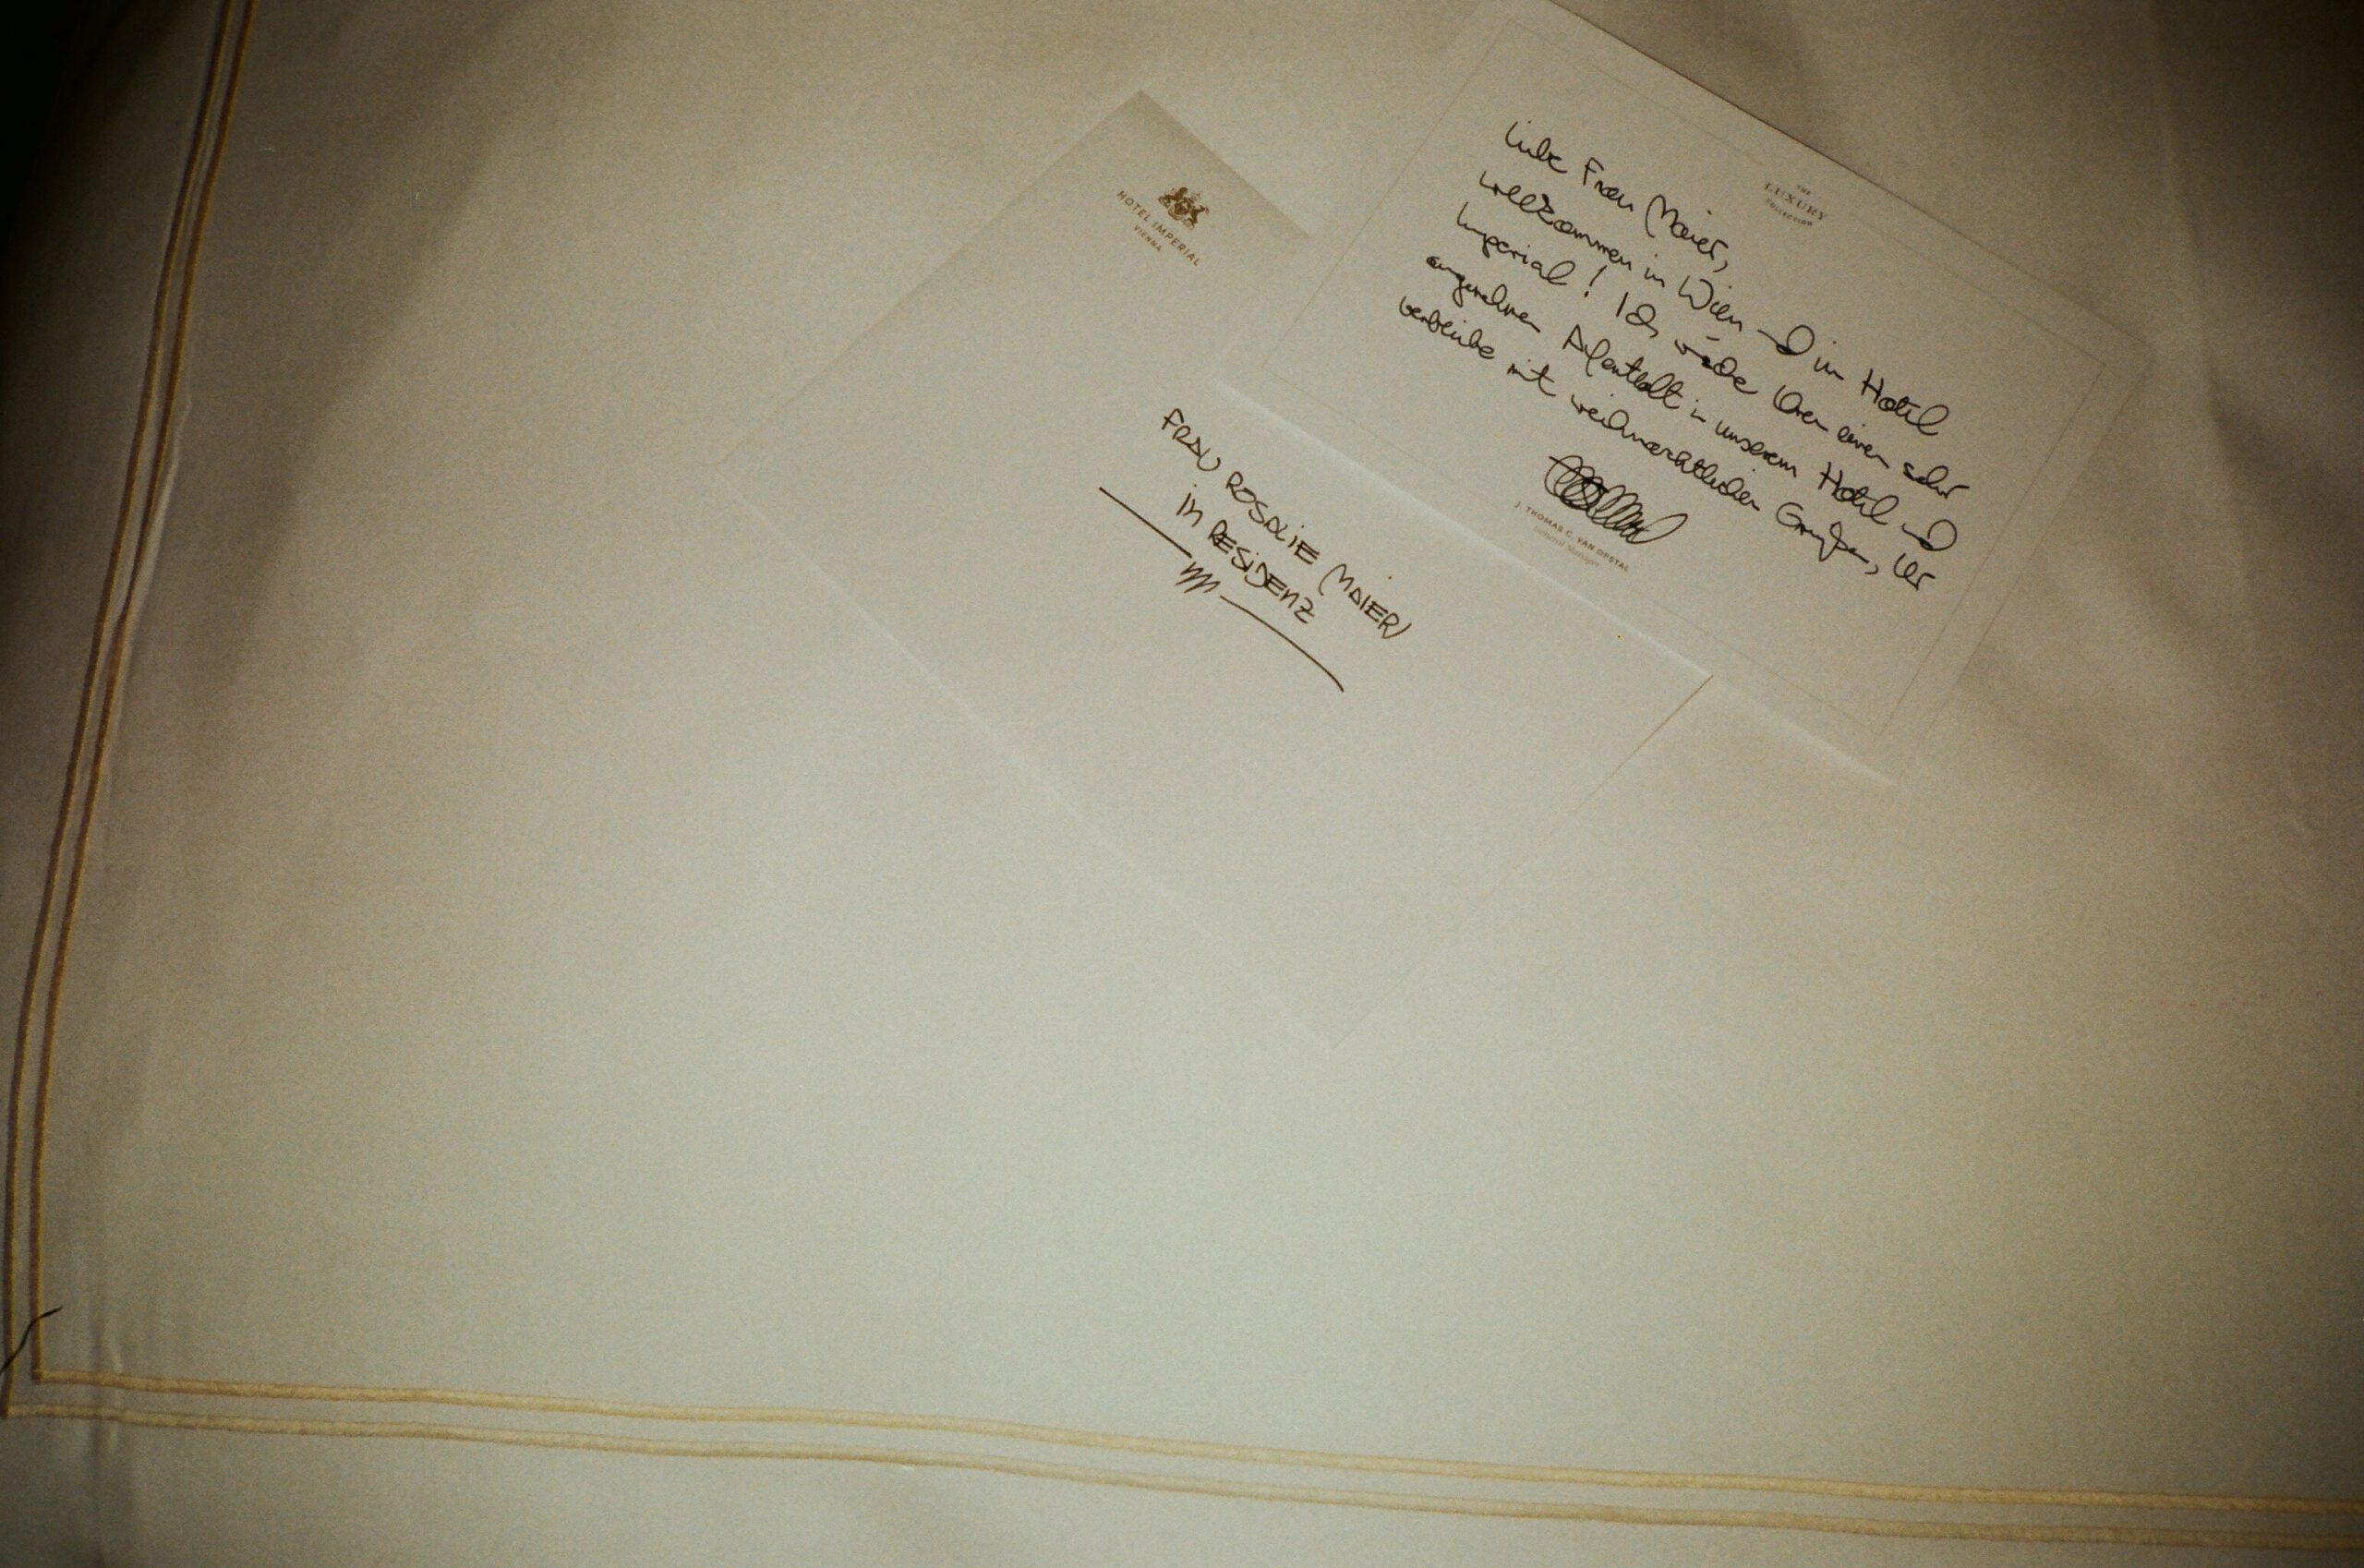 HOTEL IMPERIAL
VIENNA
FRAU ROSALIE MAIER
in RESIDENZ
THE
LUXURY
COLLECTION
Liebe Frau Maier,
willkommen in Wien und im Hotel
Imperial! Ich würde Ihnen einen sehr
angenehmen Aufenthalt in unserem Hotel und
verbleibe mit weihnachtlichen Grüßen, Ihr
J. THOMAS C. VAN OPSTAL
General Manager